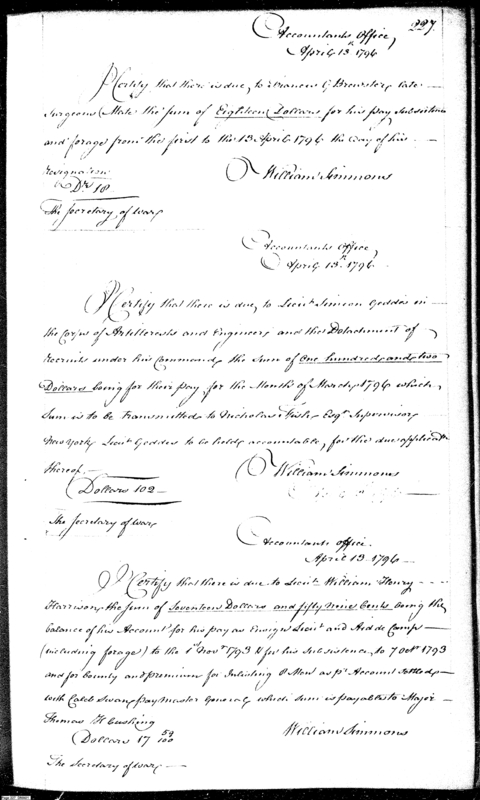 227.
Accountants Office,
April 13th 1796
I Certify that there is due, to Francis G Brewster, late
Surgeons Mate the sum of Eighteen Dollars for his pay, Subsistence
and forage from the first to the 13 April 1796 the day of his
resignation
Drs 18
William Simmons
The Secretary of War,
Accountants Office,
April 13th 1796
I Certify that there is due, to Lieut Simeon Geddes in
the Corps of Artillerists and Engineers, and the Detachment of
recruits under his Command, the Sum of One hundred and two
Dollars being for their pay for the Month of March, 1796 which
sum is to be transmitted to Nicholas Fish, Esqr Supervisor,
New York, Lieut Geddes to be held accountable, for the due application
thereof
William Simmons
Dollars 102
The Secretary of War,
Accountants Office.
April 13. 1796
I Certify that there is due to Lieut William Henry
Harrison, the sum of Seventeen Dollars and fifty nine Cents being the
balance of his Account for his pay as Ensign Lieut and Aid de Camp
(including forage) to the 1st Novr 1793 & for his Subsistence, to 7 Octr 1793
and for bounty and premium for Inlisting 8 Men as pr Account settled,
with Caleb Swan, pay Master General, which sum is payable to Major
Thomas H Cushing
Dollars 17 59/100
William Simmons
The Secretary of War